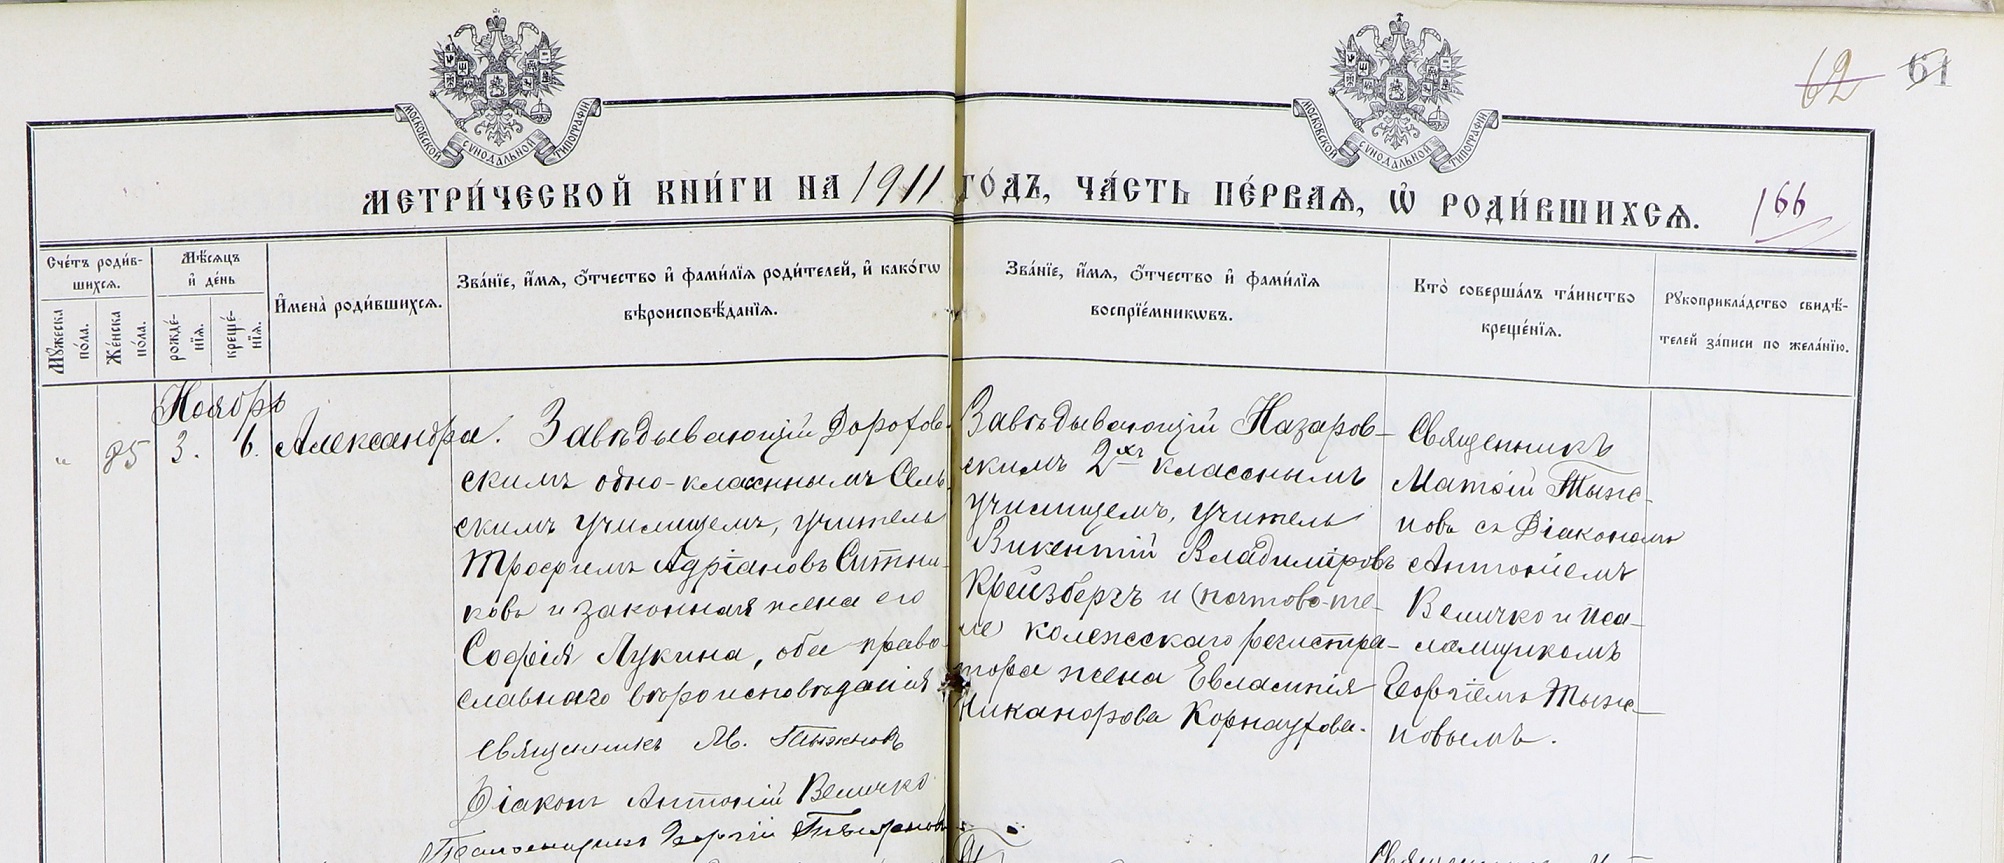 62 61
МОСКОВСКОЙ СѴНОДАЛЬНОЙ ТИПОГРАФІИ
МОСКОВСКОЙ СѴНОДАЛЬНОЙ ТИПОГРАФІИ
МЕТРИ́ЧЕСКОЙ КНИ́ГИ НА 1911 ГО́ДЪ, ЧА́СТЬ ПЕ́РВАѦ, Ѽ РОДИ́ВШИХСѦ.
166
Сче́тъ роди́в-
шихсѧ.
Мꙋ́жеска
по́ла.
Же́нска
по́ла.
Мѣ́сѧцъ
и҆ де́нь
рожде́-
нїѧ.
креще́-
нїѧ.
И҆мена̀ роди́вшихсѧ.
Зва́нїе, и҆́мѧ, ѻ҆́тчество и҆ фами́лїѧ роди́телей, и҆ како́гѡ
вѣроисповѣ́данїѧ.
Зва́нїе, и҆́мѧ, ѻ҆́тчество и҆ фами́лїѧ
воспрїе́мникѡвъ.
Кто̀ соверша́лъ та́инство
креще́нїѧ.
Рꙋкоприкла́дство свидѣ́-
телей за́писи по жела́нїю.
Ноябрь
„ 85 3. 6. Александра.
Завѣдывающій Дорохов-
скимъ одно-класнымъ Сель-
скимъ училищемъ, учитель
Трофимъ Адріановъ Ситни-
ковъ и законная жена его
Софія Лукина, оба право-
славнаго вѣроисповѣданія
Священникъ М. Тыжновъ
Діаконъ Антоній Величко
Псаломщикъ Георгій Тыжновъ
Завѣдывающій Назаров-
скимъ 2хъ класснымъ
училищемъ, учитель
Викентій Владиміровъ
Крейзбергъ и (почтово-те-
ле) колежскаго регистра-
тора жена Евлампія
Никанорова Корнаухова.
Священникъ
Матѳій Тыж-
новъ съ Діакономъ
Антоніемъ
Величко и пса-
ломщикомъ
Георгіемъ Тыж-
новымъ.